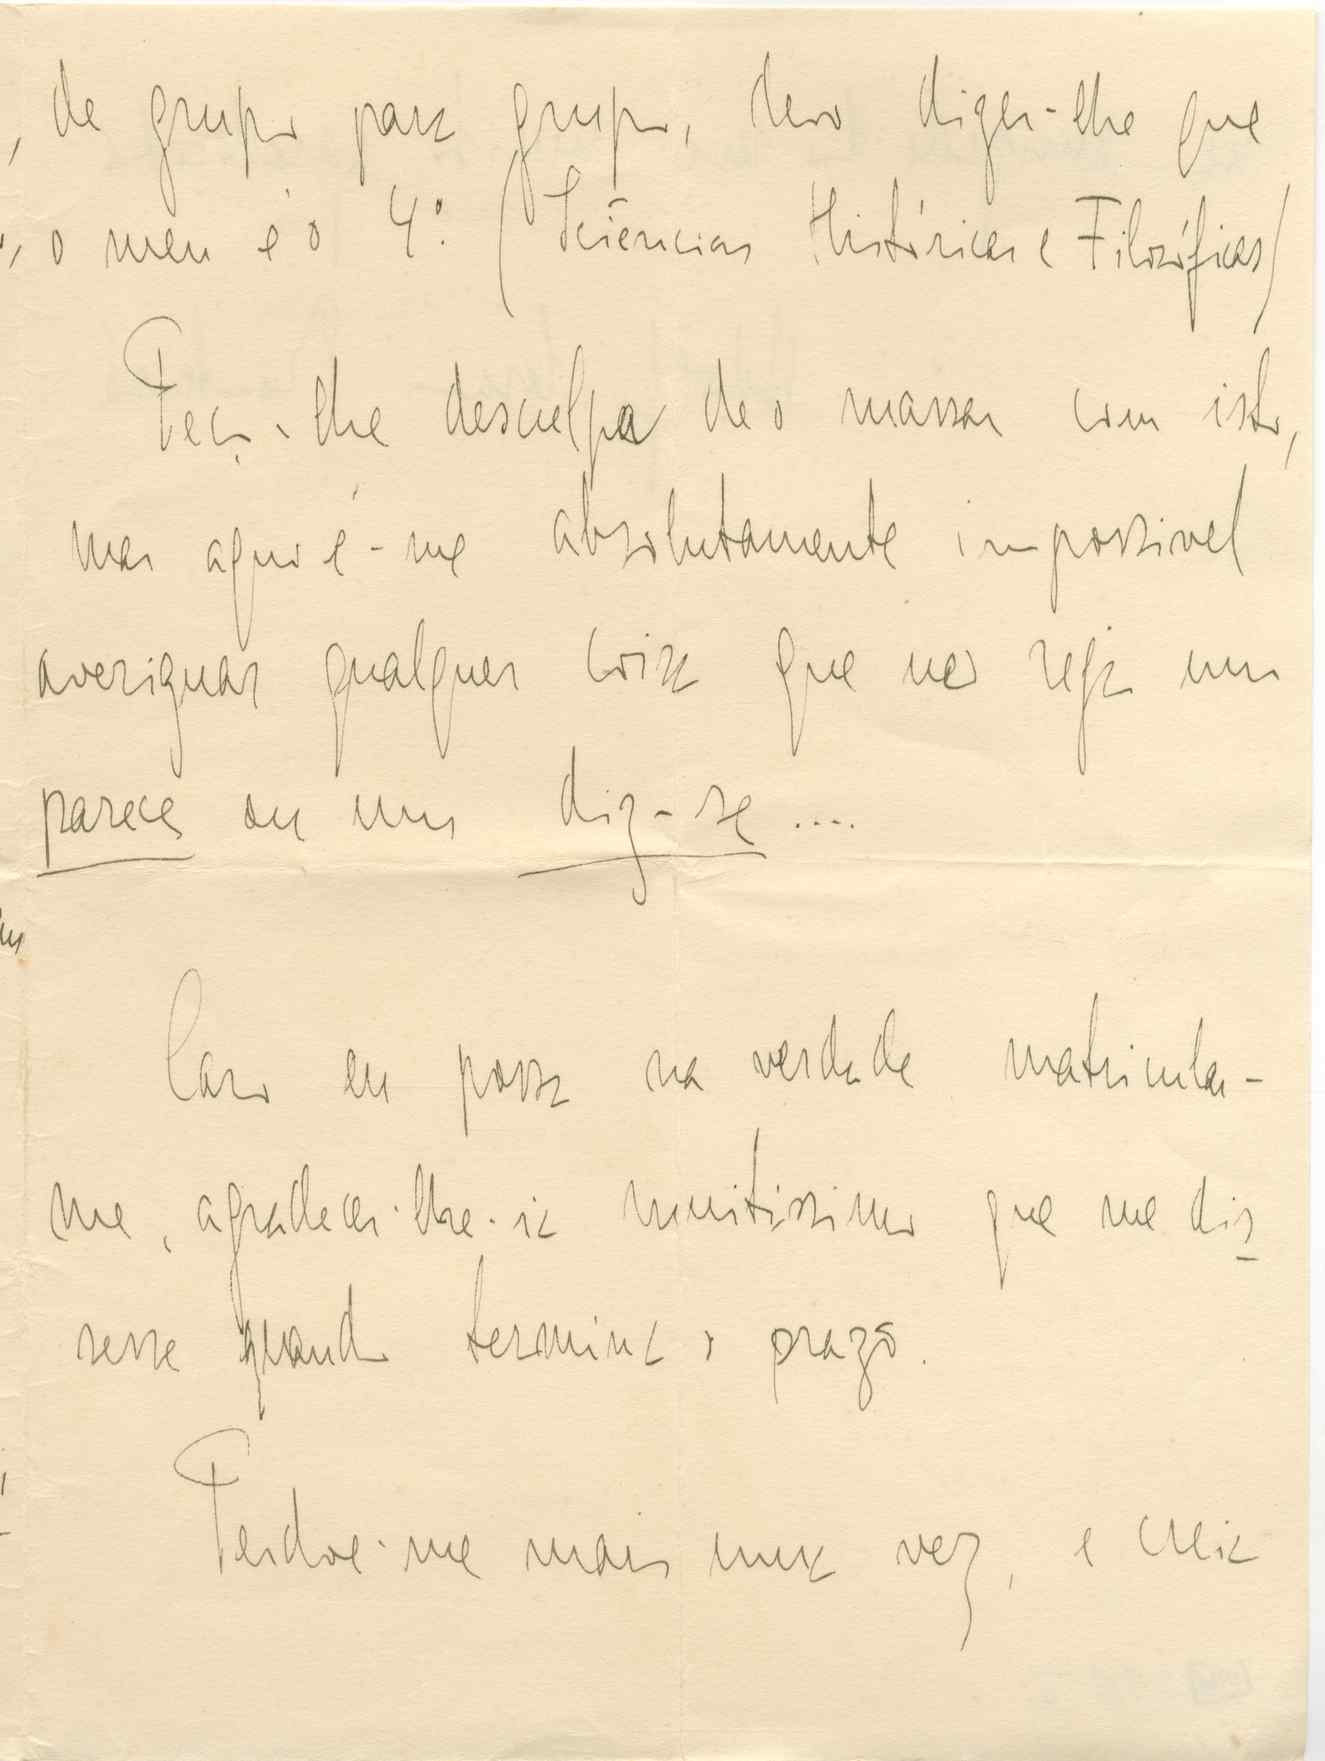 de grupo para grupo, devo dizer-lhe que
o meu é o 4º. (Sciências Históricas e Filosóficas)
Peço-lhe desculpa de o massar com isto,
mas aqui é-me absolutamente impossivel
averiguar qualquer coisa que não seja um
parece ou um diz-se....
Caso eu possa na verdade matricular-
me, agradecer-lhe-ia muitissimo que me dis-
sesse quando termina o prazo.
Perdoe-me mais uma vez, e creia